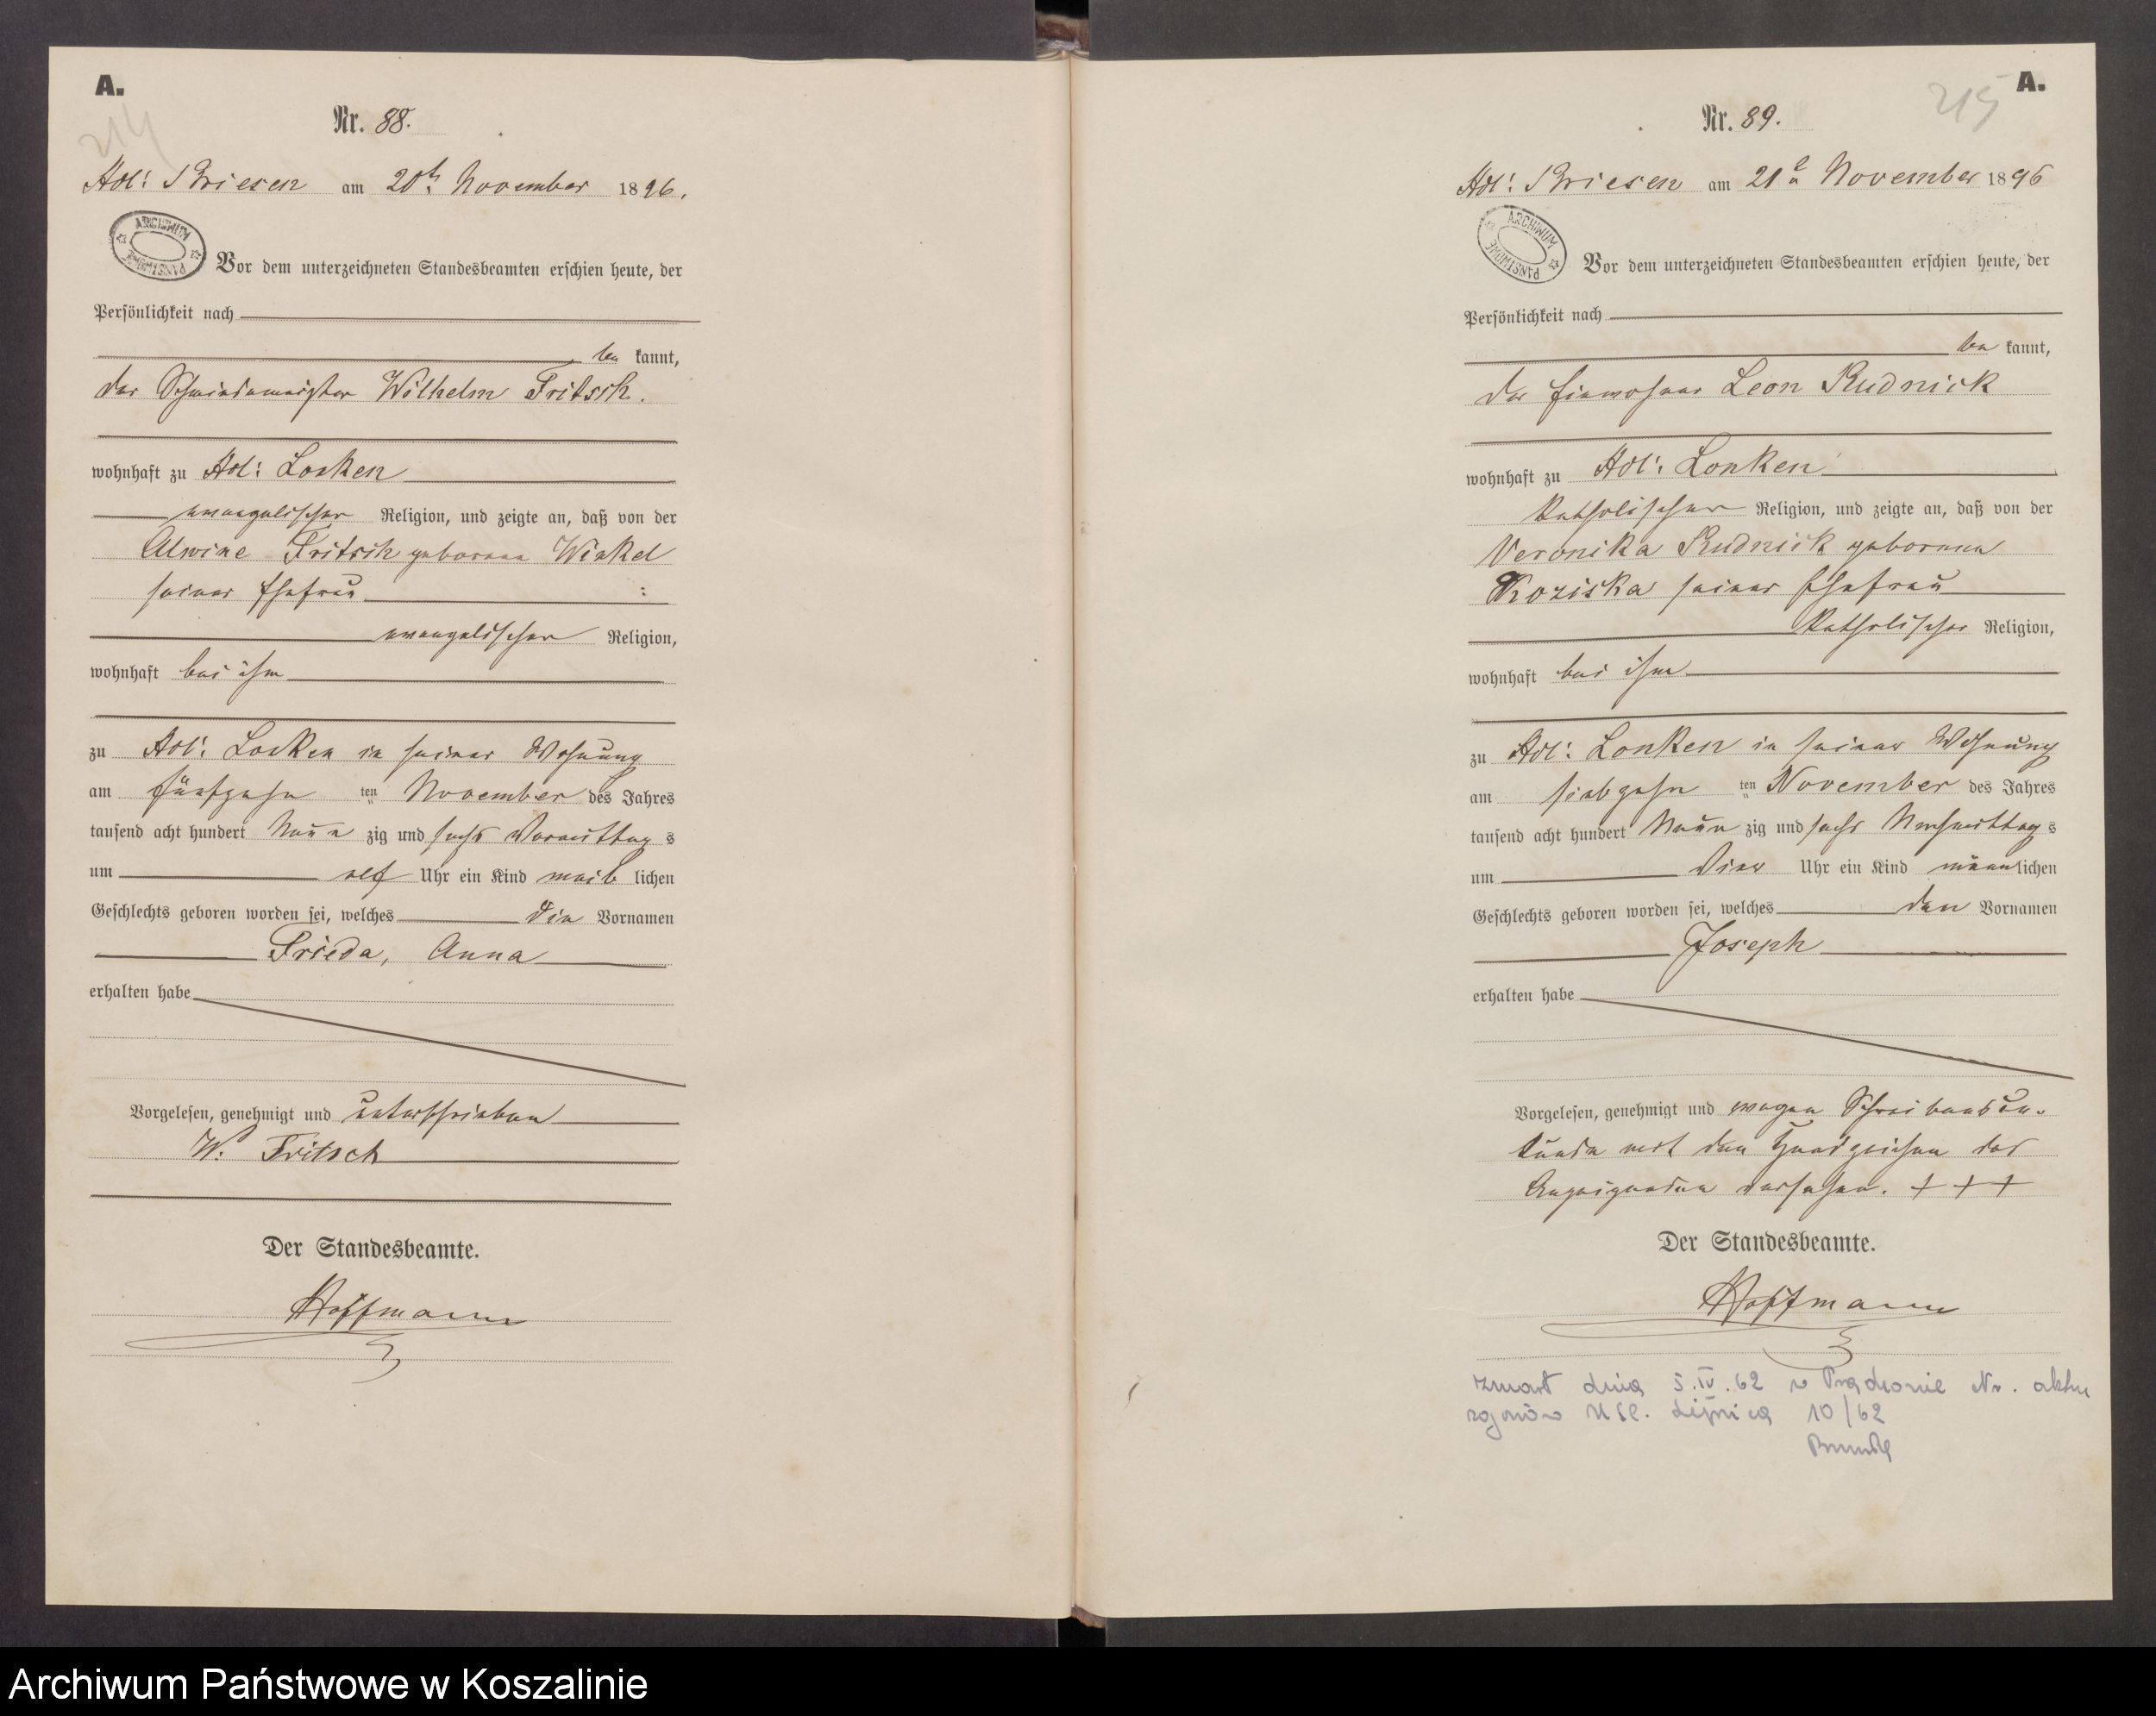 A.
214
Nr. 88.
Adl: Briesen am 20th November 1896.
ARCHIWUM PAŃSTWOWE
Vor dem unterzeichneten Standesbeamten erschien heute, der
Persönlichkeit nach
be kannt,
der Schmiedemeister Wilhelm Fritsch.
wohnhaft zu Adl: Lonken
evangelischer Religion, und zeigte an, daß von der
Alwine Fritsch geborene Winkel
seiner Ehefrau
evangelischer Religion,
wohnhaft bei ihm
zu Adl: Lonken in seiner Wohnung
am fünfzehn ten November des Jahres
tausend acht hundert Neun zig und sechs Vormittag s
um elf Uhr ein Kind weib lichen
Geschlechts geboren worden sei, welches die Vornamen
Frieda, Anna
erhalten habe
Vorgelesen, genehmigt und unterschrieben
W. Fritsch
Der Standesbeamte.
Hoffmann
A.
215
Nr. 89.
Adl: Briesen am 21 November 1896
ARCHIWUM PAŃSTWOWE
Vor dem unterzeichneten Standesbeamten erschien heute, der
Persönlichkeit nach
be kannt,
der Einwohner Leon Rudnick
wohnhaft zu Adl: Lonken
katholischer Religion, und zeigte an, daß von der
Veronika Rudnick geborene
Koziska seiner Ehefrau
katholischer Religion,
wohnhaft bei ihm
zu Adl: Lonken in seiner Wohnung
am siebzehn ten November des Jahres
tausend acht hundert Neun zig und sechs Nachmittag s
um vier Uhr ein Kind männlichen
Geschlechts geboren worden sei, welches den Vornamen
Joseph
erhalten habe
Vorgelesen, genehmigt und wegen Schreibensun-
kunde mit den Handzeichen des
Anzeigenden versehen. + + +
Der Standesbeamte.
Hoffmann
zmarł dnia 5.IV.62 w Prądzonie Nr. aktu
zgonów USC. Lipnica 10/62
Archiwum Państwowe w Koszalinie